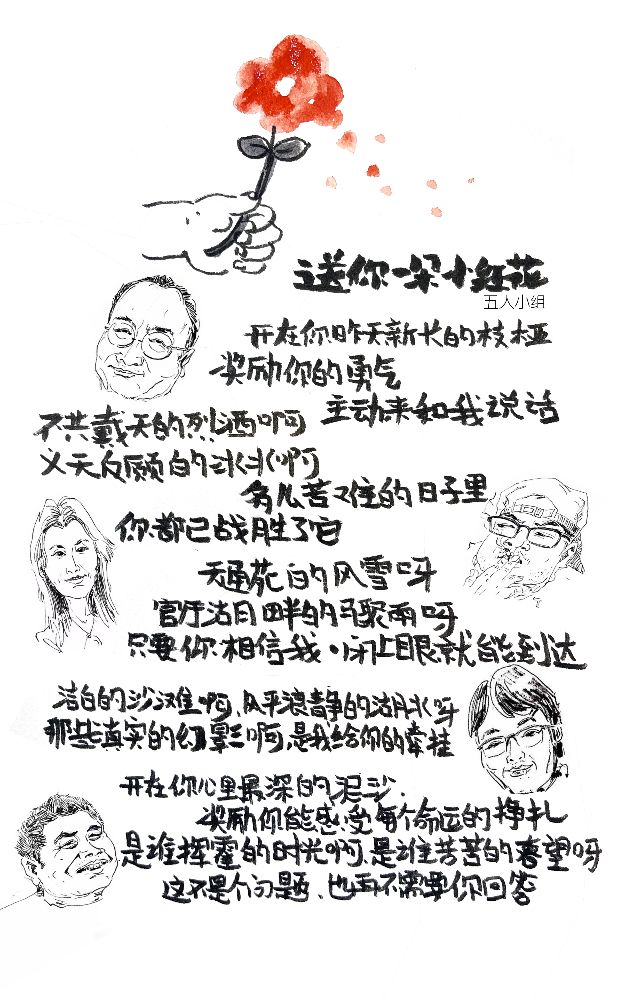 送你一朵小红花
五人小组
开在你昨天新长的枝桠
奖励你的勇气
主动来和我说话
不共戴天的烈酒啊
义无反顾的冰水啊
多么苦难的日子里
你都已战胜了它
天通苑的风雪呀
官厅湖畔的马聚雨呀
只要你相信我,闭上眼就能到达
洁白的沙滩啊、风平浪静的湖水呀
那些真实的幻影啊,是我给你的牵挂
开在你心里最深的泥沙、
奖励你能感受每个命运的挣扎
是谁挥霍的时光啊、是谁苦苦的奢望呀
这不是个问题、也再不需要你回答